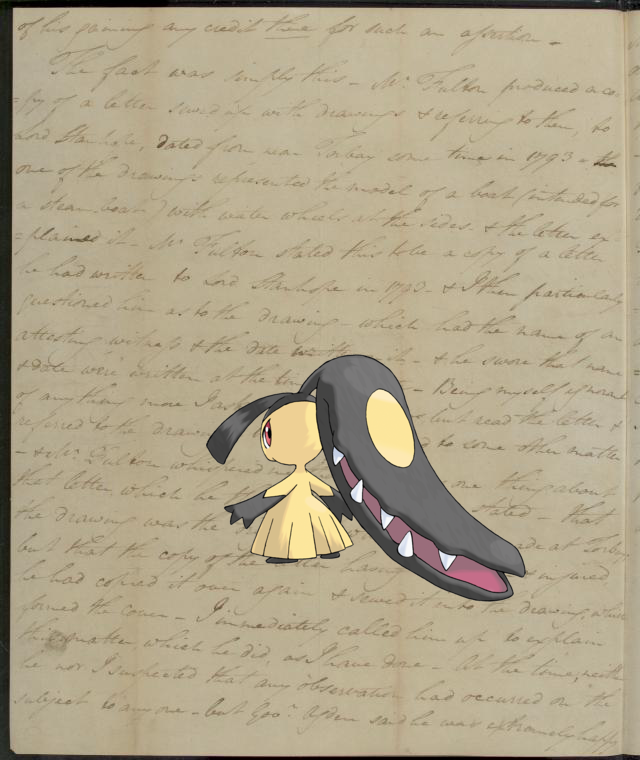 of his gaining any credit there for such an assertion -
The fact was simply this - Mr. Fulton produced a co-
=py of a letter sewed up with drawings & referring to them, to
Lord Stanhope, dated from near Torbay some time in 1793 - the
one of the drawings represented the model of a boat (intended for
a steam-boat) with water wheels at the sides. & the letter ex-
=plained it - Mr. Fulton stated this to be a copy of a letter
he had written to Lord Stanhope in 1793 - & I then particularly
questioned him as to the drawing - which had the name of an
attesting witness & the date it - & he swore that name
& date were written at the - Being myself ignorant
of any thing more I but read the letter &
referred to the to some other matter
- & Mr. Fulton whispered one thing about
that letter which he stated - that
the drawing was the made at Torbay
but that the copy of the letter having injured
he had copied it over again & sewed it into the drawing, which
formed the cover - I immediately called him up to explain
this matter, which he did, as I have done - At the time, neither
he nor I suspected that any observation had occurred on the
subject to any one - but Govr. Ogden said he was extremely happy